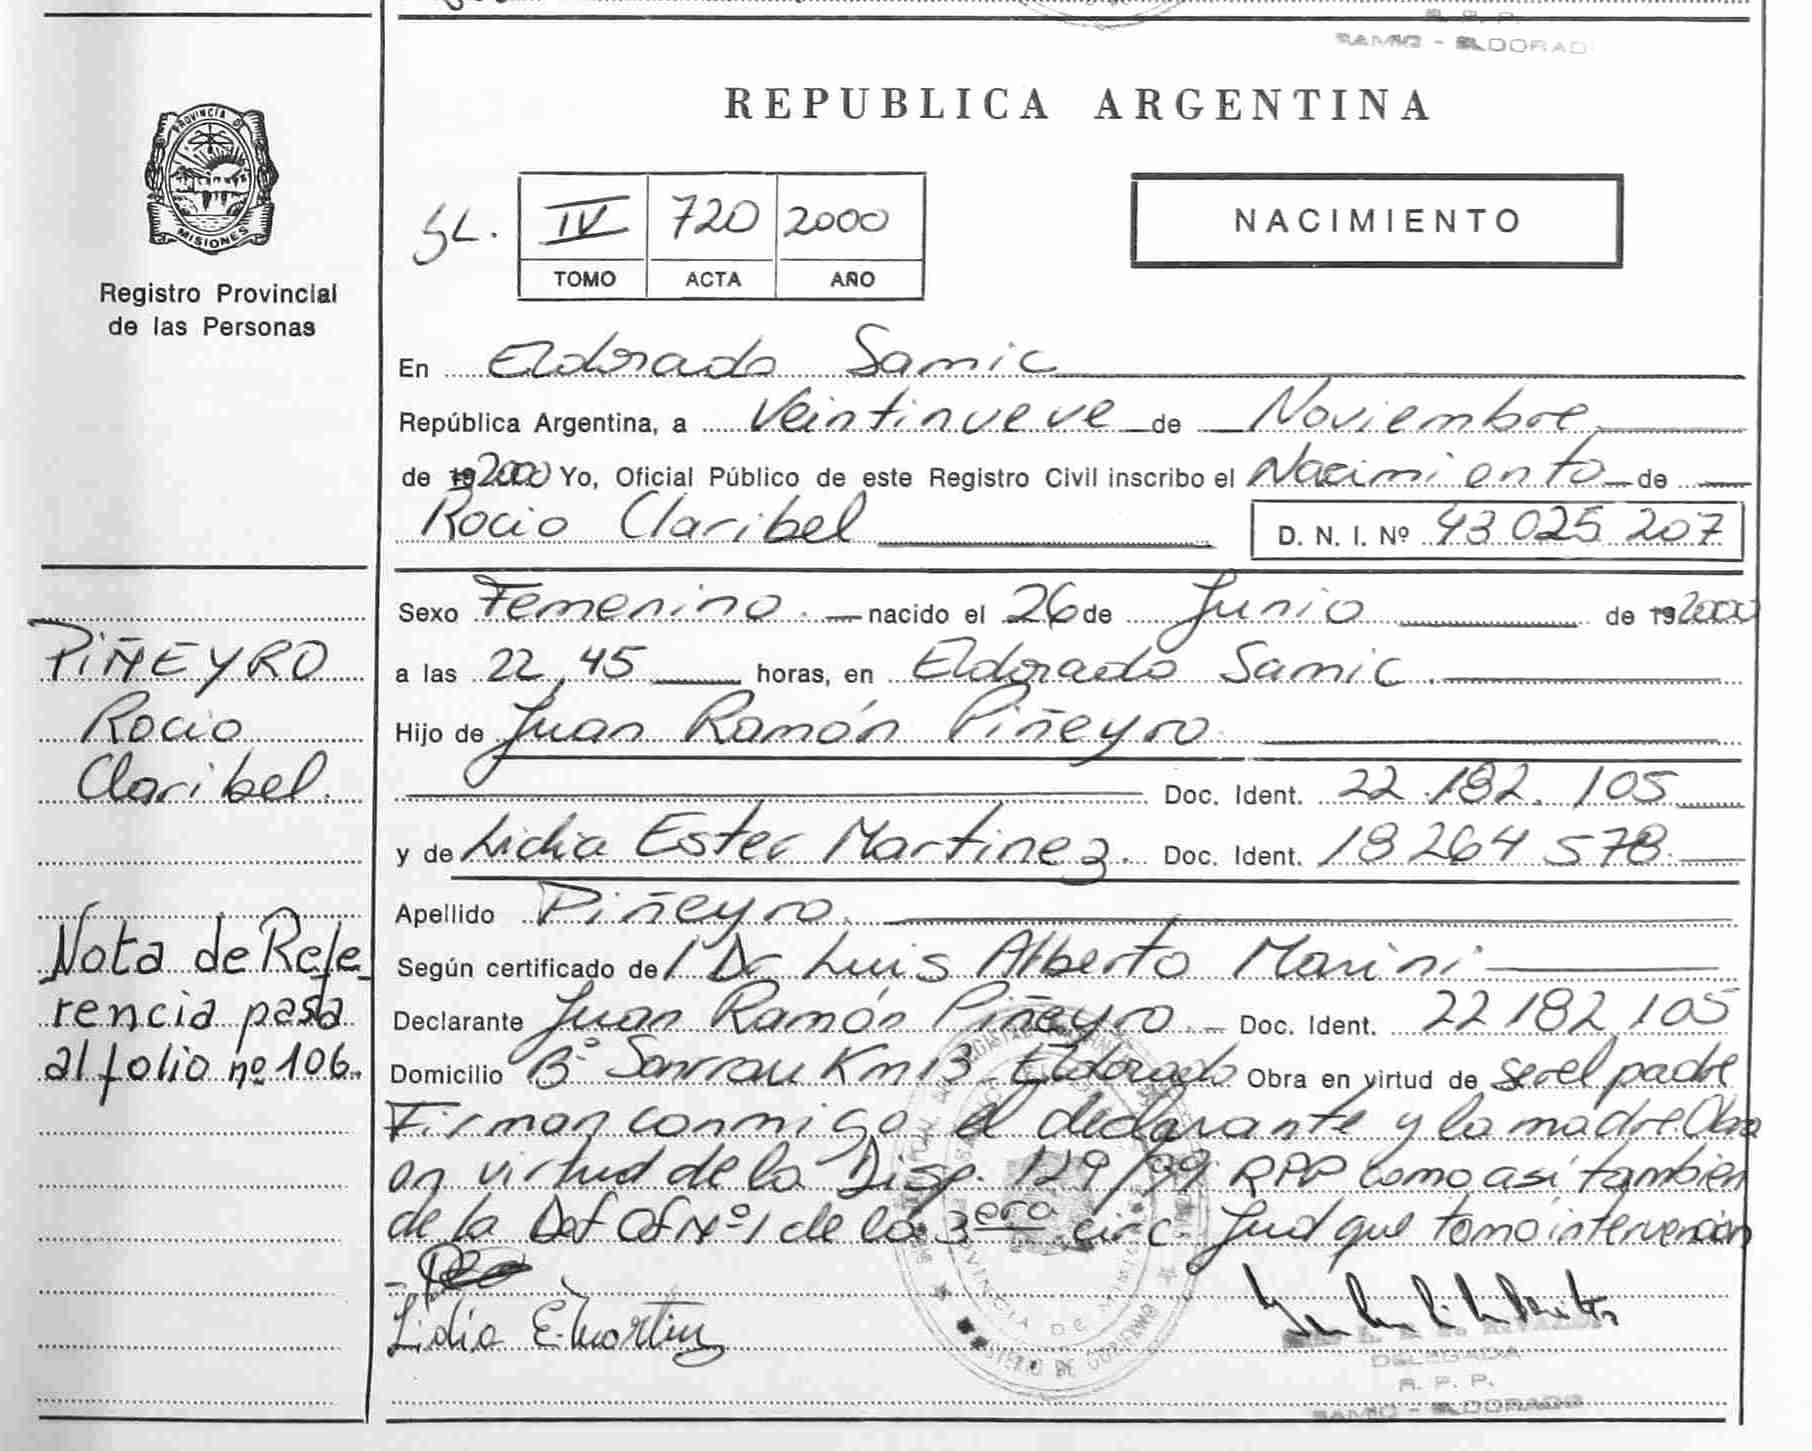 SAMIC - ELDORADO
REPUBLICA ARGENTINA
PROVINCIA DE
MISIONES
Registro Provincial
de las Personas
IV 720 2000
TOMO ACTA AÑO
NACIMIENTO
En Eldorado Samic
República Argentina, a Veintinueve de Noviembre
de 19 2000 Yo, Oficial Público de este Registro Civil inscribo el Nacimiento de
Rocio Claribel D. N. I. Nº 43 025 207
Sexo Femenino. nacido el 26 de Junio de 19 2000
a las 22,45 horas, en Eldorado Samic.
Hijo de Juan Ramón Piñeyro.
Doc. Ident. 22.182.105
y de Lidia Ester Martinez. Doc. Ident. 18 264 578.
Apellido Piñeyro.
Según certificado del Dr Luis Alberto Marini
Declarante Juan Ramón Piñeyro. Doc. Ident. 22 182 105
Domicilio Bº Km 13 Eldorado Obra en virtud de ser el padre
Firman conmigo el declarante y la madre Obra
en virtud de la Disp. 129/99 RPP como así tambien
de la Def Of Nº 1 de la 3era circ. Jud que tomo intervencion
Lidia E. Martinez
DELEGADA
R. P. P.
SAMIC - ELDORADO
PIÑEYRO
Rocio
Claribel.
Nota de Refe-
rencia pasa
al folio nº 106.